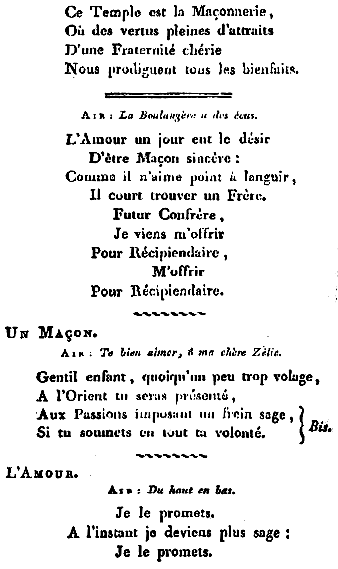 Ce Temple est la Maçonnerie,
Où des vertus pleines d'attraits
D'une Fraternité chérie
Nous prodiguent tous les bienfaits.
Air : La Boulangère a des écus.
L'Amour un jour eut le désir
D'être Maçon sincère :
Comme il n'aime point à languir,
Il court trouver un Frère.
Futur Confrère,
Je viens m'offrir
Pour Récipiendaire,
M'offrir
Pour Récipiendaire.
Un Maçon.
Air : Te bien aimer, ô ma chère Zélie.
Gentil enfant, quoiqu'un peu trop volage,
A l'Orient tu seras présenté,
Aux Passions imposant un frein sage,
Si tu soumets en tout ta volonté. } Bis.
L'Amour.
Air : Du haut en bas.
Je le promets.
A l'instant je deviens plus sage :
Je le promets.